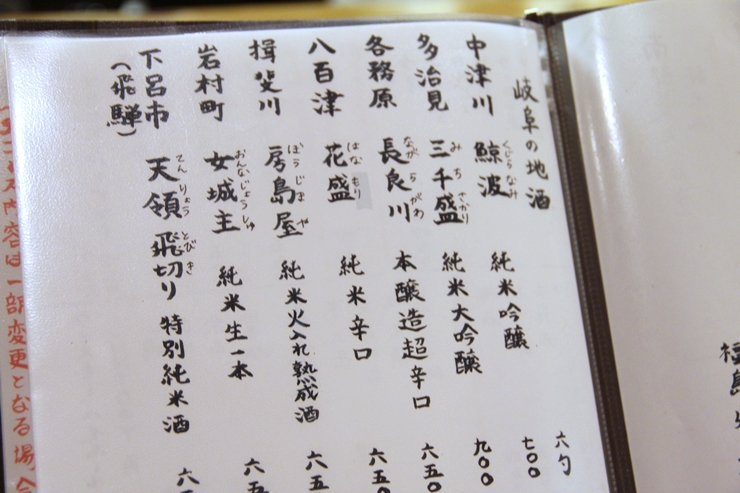 岐阜の地酒 六勺
くじらなみ
中津川 鯨波 純米吟醸 七〇〇
みちさかり
多治見 三千盛 純米大吟醸 九〇〇
ながらがわ
各務原 長良川 本醸造超辛口 六五〇
はなもり
八百津 花盛 純米辛口 六五〇
ぼうじまや
揖斐川 房島屋 純米火入れ熟成酒 六五
おんなじょうしゅ
岩村町 女城主 純米生一本 六五
てんりょう とびき
下呂市 天領 飛切り 特別純米酒 六
(飛騨)
内容は一部変更となる場合